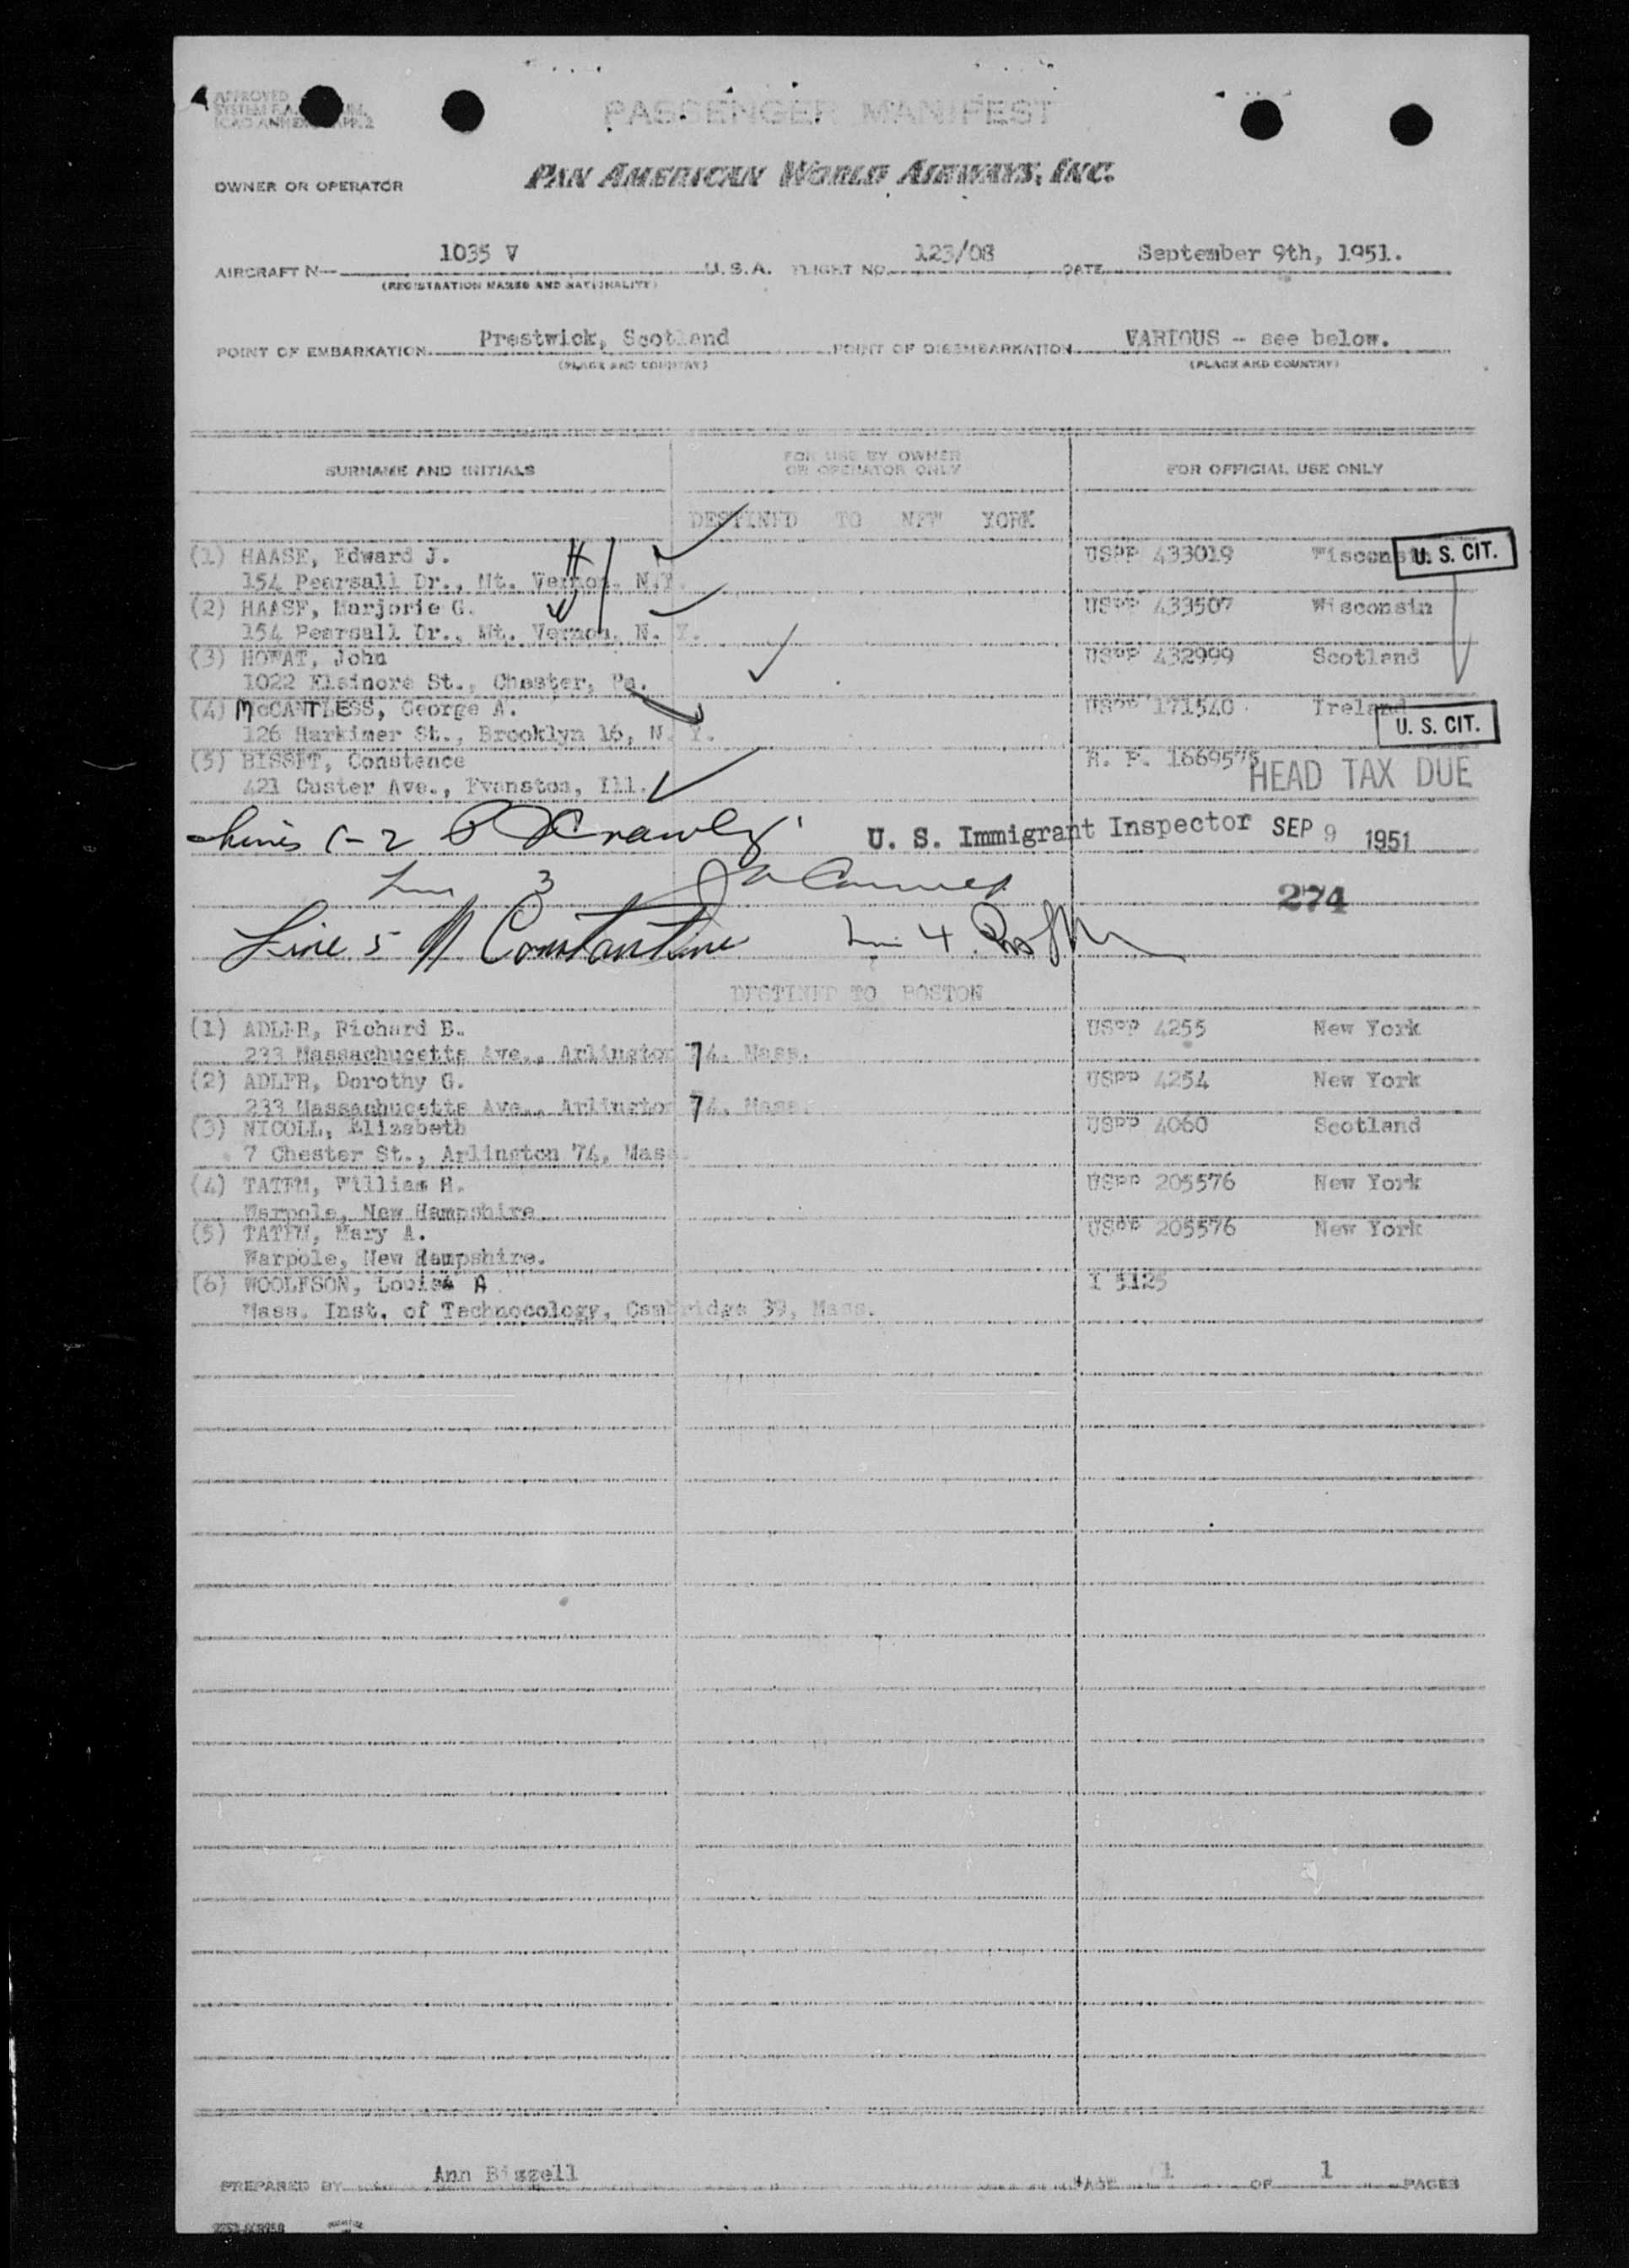 APPROVED
PASSENGER MANIFEST
OWNER OR OPERATOR PAN AMERICAN WORLD AIRWAYS, INC.
AIRCRAFT N— 1035 V U.S.A. FLIGHT NO. 123/08 DATE September 9th, 1951.
(REGISTRATION MARKS AND NATIONALITY)
POINT OF EMBARKATION Prestwick, Scotland POINT OF DISEMBARKATION VARIOUS - see below.
(PLACE AND COUNTRY) (PLACE AND COUNTRY)
SURNAME AND INITIALS FOR USE BY OWNER OR OPERATOR ONLY FOR OFFICIAL USE ONLY
DESTINED TO NEW YORK
(1) HAASE, Edward J. USPP 433019 Wisconsin U. S. CIT.
154 Pearsall Dr., Mt. Vernon, N.Y.
(2) HAASE, Marjorie G. USPP 433507 Wisconsin
154 Pearsall Dr., Mt. Vernon, N. Y.
(3) HOWAT, John USPP 432999 Scotland
1022 Elsinore St., Chester, Pa.
(4) McCANTLESS, George A. USPP 171540 Ireland U. S. CIT.
126 Harkimer St., Brooklyn 16, N. Y.
(5) BISSET, Constance R. P. 1669575
421 Custer Ave., Evanston, Ill. HEAD TAX DUE
Lines 1-2 Crawley U. S. Immigrant Inspector SEP 9 1951
3
274
Line 5 N Constantine 4
DESTINED TO BOSTON
(1) ADLER, Richard B. USPP 4255 New York
233 Massachusetts Ave., Arlington 74, Mass.
(2) ADLER, Dorothy G. USPP 4254 New York
233 Massachusetts Ave., Arlington 74, Mass.
(3) NICOLL, Elizabeth USPP 4060 Scotland
7 Chester St., Arlington 74, Mass.
(4) TATEM, William H. USPP 205576 New York
Warpole, New Hampshire.
(5) TATEM, Mary A. USPP 205576 New York
Warpole, New Hampshire.
(6) WOOLFSON, Louisa A I 5125
Mass. Inst. of Technocology, Cambridge 39, Mass.
PREPARED BY Ann Bizzell PAGE 1 OF 1 PAGES